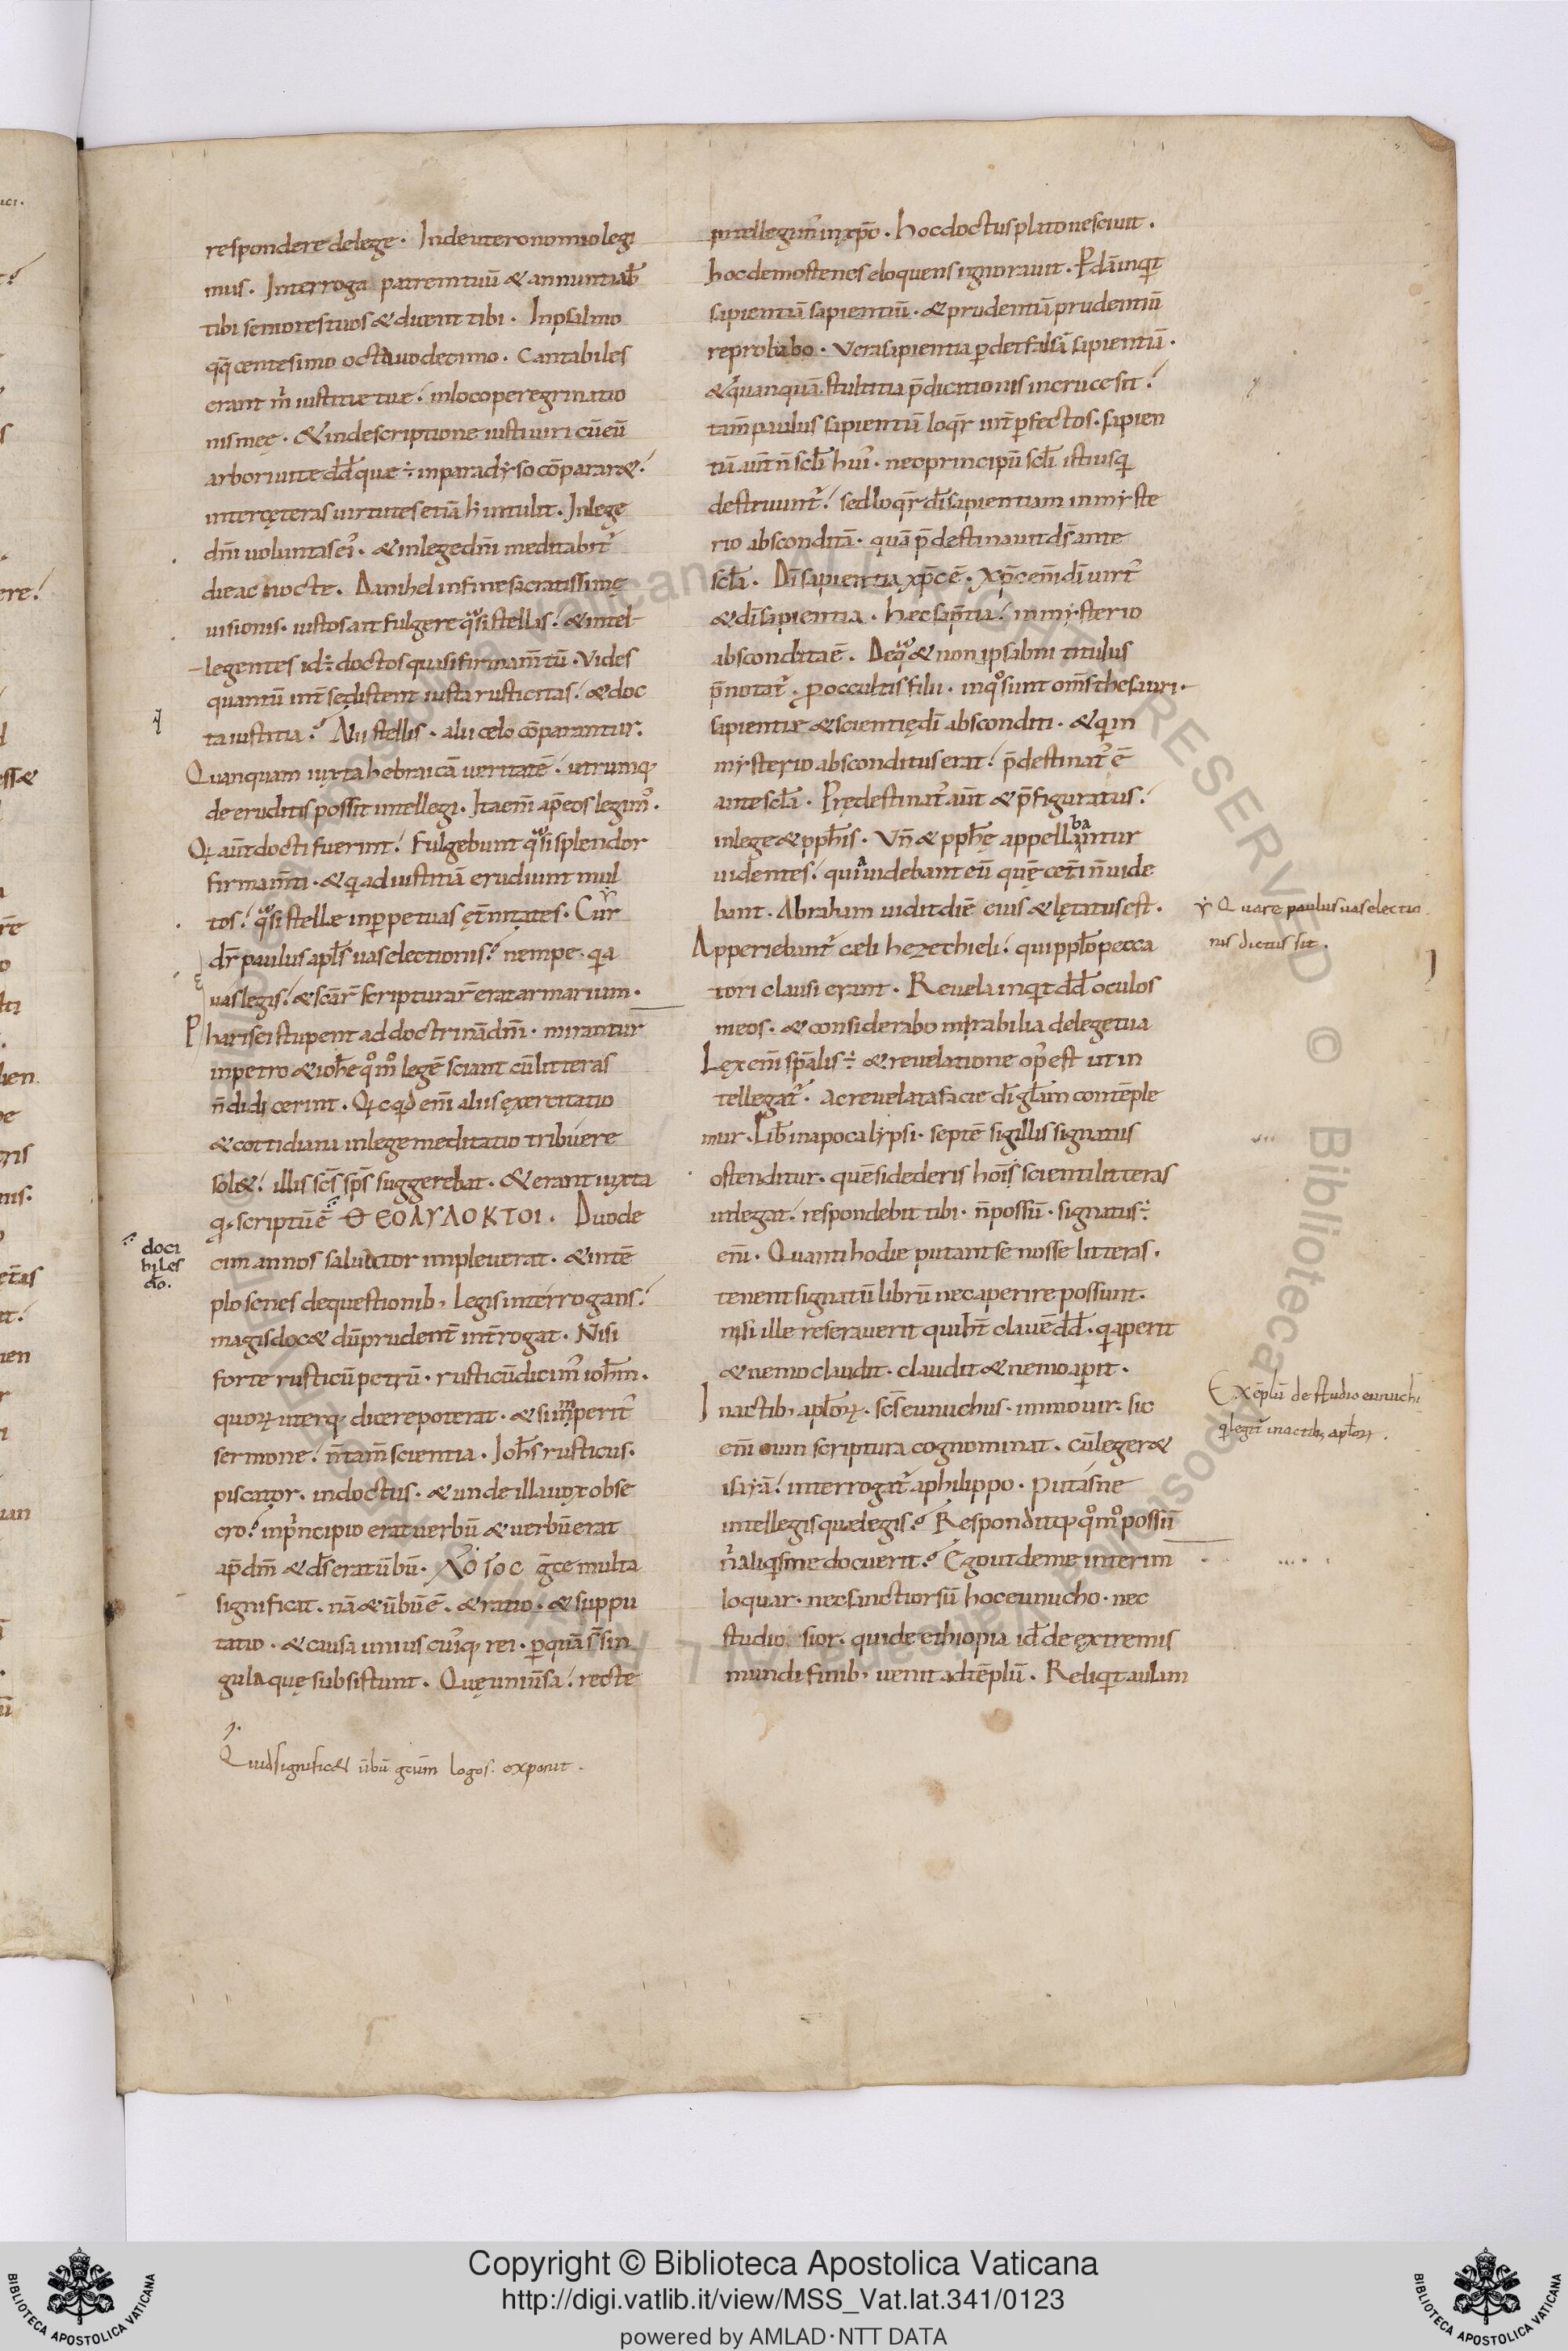 respondere delege. Indeuteronomio legi
mus. Interroga patrem tuū & annuntiab̄
tibi seniores tuos & dicent tibi. Inpsalmo
qq̄ centesimo octauodecimo. Cantabiles
erant m̄ iustitie tue. inloco peregrinatio
nis meę. & indescriptione iusti uiri cū eū
arbori uite dd̄ que ÷ inparadyso cōparar&.
interceteras uirtutes etiā h̄ intulit. Inlege
dn̄i uoluntas ei᾿. & inlege dn̄i meditabit᾿
die ac nocte. Danihel infine sacratissimę
uisionis. iustos ait fulgere qᵃsi stellas. & intel-
legentes id÷ doctos quasi firmam̄tū. Vides
quantū int̄ se distent iusta rusticitas. & doc
ta iustitia? Alii stellis. alii celo cōparantur.
Quanquam iuxta hebraicā ueritatē. utrumq;
de eruditis possit intellegi. Ita em̄ ap̄ eos legim᾿.
Qi aūt docti fuerint. Fulgebunt qᵃsi splendor
firmam̄ti. & qi ad iustitiā erudiunt mul
tos. qᵃsi stelle inp̱petuas ęt̄nitates. Cur
dr̄ paulus apl̄s uas electionis? nempe. qi̱a
uas legis. & scār̄ scripturar̄ erat armarium.
Pharisei stupent ad doctrinā dn̄i. mirantur
inpetro & ioh̄e qᵒmᵒ legē sciant cū litteras
n̄ didicerint. Qicqid em̄ aliis exercitatio
& cottidiana inlege meditatio tribuere
sol&. illis sc̄s sp̄s suggerebat. & erant iuxta
qi scriptū ē ΘΕΟΔΥΔΟΚΤΟΙ. Duode
cim annos saluator impleuerat. & intē
plo senes dequestionib; legis interrogans.
magis doc& dū prudent᾿ int̄rogat. Nisi
forte rusticū petrū. rusticū dicim᾿ ioh̄m.
quor̨ uterq; dicere poterat. & si imperit᾿
sermone. n̄ tam̄ scientia. Ioh̄s rusticus.
piscator. indoctus. & unde illa uox obse
cro? inprincipio erat uerbū & uerbū erat
ap̄ dm̄ & ds̄ erat ūbū. Λόγος gce multa
significat. nā & ūbū ē. & ratio. & suppu
tatio. & causa unius cui᾿q; rei. p̱quā st̄ sin
gula quę subsistunt. Quę uniūsa. recte
Quid signific& ūbū gcūm logos. exponit.
doci
biles
do.
intellegim᾿ inxp̄o. Hoc doctus plato nesciuit.
hoc demostenes eloquens ignorauit. P̱dā inqit
sapientiā sapientiū. & prudentiā prudentiū
reprobabo. Vera sapientia p̱det falsā sapientiā.
& quanquā stultitia p̄dicationis incruce sit.
tam̄ paulus sapientiā loqr̄ int̄ p̱fectos. sapien
tiā aūt n̄ scl̄i hui᾿. nec principū scl̄i istius qi
destruunt᾿. sed loqr̄ dī sapientiam inmyste
rio absconditā. quā p̄destinauit ds̄ ante
scl̄a. Dī sapientia xp̄c ē. xp̄c em̄ dī uirt᾿
& dī sapientia. Hec sap̄tia. inmysterio
abscondita ē. Deqᵃ & noni psalmi titulus
p̄notat᾿. p̱ occultis filii. inqᵒ sunt om̄s thesauri.
sapientię & scientię dī absconditi. & qi in
mysterio absconditus erat. p̄destinat᾿ ē
ante scl̄a. Pr̨destinat᾿ aūt & p̄figuratus.
inlege & pph̄is. Vn̄ & pph̄ę appellabantur
uidentes. quia uidebant eū quē cet̄i n̄ uide
bant. Abraham uidit diē eius & lętatus est.
Apperiebant᾿ cęli hezechieli. qui pplo pecca
tori clausi erant. Reuela inqit dd̄ oculos
meos. & considerabo mirabilia de lege tua
Lex em̄ spālis ÷ & reuelatione op᾿ est ut in
tellegat᾿. ac reuelata facie dī glām contēple
mur. Lib̄ inapocalypsi. septē sigillis signatus
ostenditur. quē si dederis hoīs scienti litteras
ut legat. respondebit tibi. n̄ possū. signatus ÷
em̄. Quanti hodie putant se nosse litteras.
tenent signatū librū nec aperire possunt.
nisi ille reserauerit qui h̄t clauē dd̄. qi aperit
& nemo claudit. claudit & nemo ap̱it.
Inactib; apl̄or̨. sc̄s eunuchus. immo uir. sic
em̄ eum scriptura cognominat. cū leger&
isaiā. interrogat᾿ aphilippo. Putasne
intellegis quę legis? Respondit qᵒmᵒ possū
n᾿ aliqis me docuerit? Ego ut de me interim
loquar. nec sanctior sū hoc eunucho. nec
studiosior. qui de ethiopia id÷ de extremis
mundi finib; uenit ad tēplū. Reliqit aulam
Quare paulus uas electio
nis dictus sit.
Exēplū de studio eunuchi
qi legit᾿ inactib; apl̄or̨.
Copyright © Biblioteca Apostolica Vaticana
http://digi.vatlib.it/view/MSS_Vat.lat.341/0123
powered by AMLAD·NTT DATA